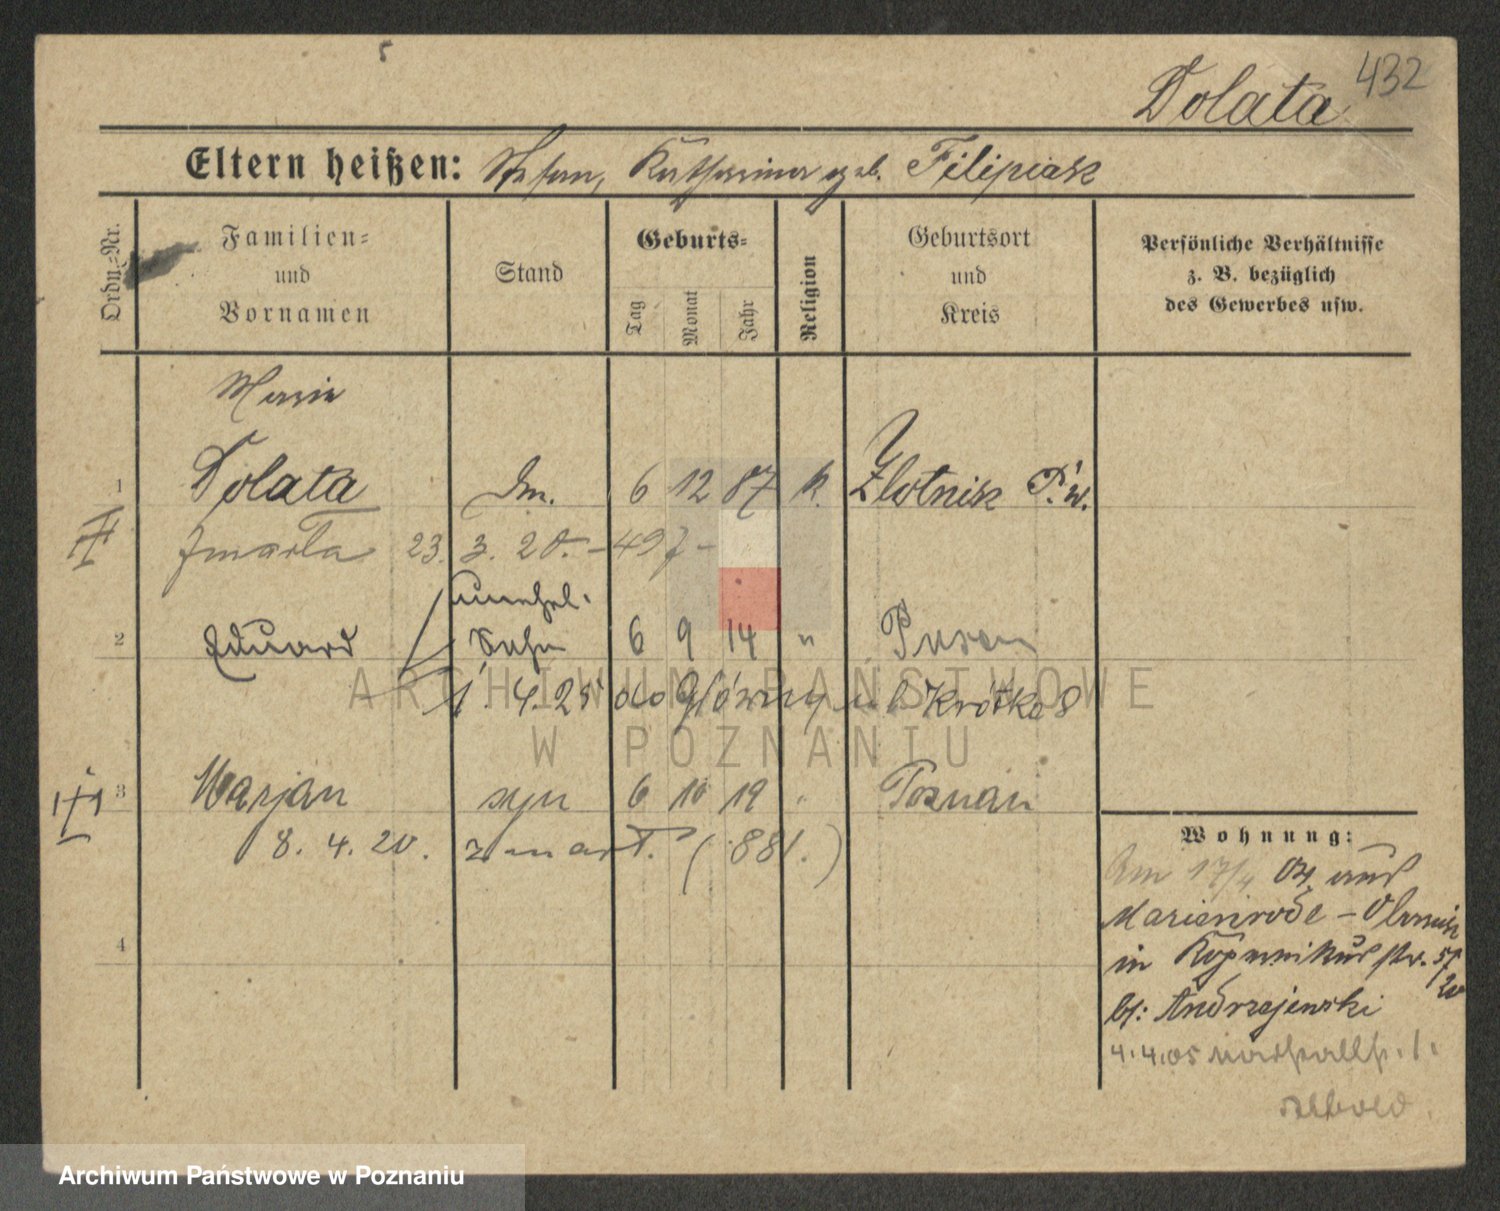 5
Dolata 432
Eltern heißen: Stefan, Katharina geb. Filipiak
Ordn.-Nr.
Familien-
und
Vornamen
Stand
Geburts-
Tag
Monat
Jahr
Religion
Geburtsort
und
Kreis
Persönliche Verhältnisse
z. B. bezüglich
des Gewerbes usw.
Marie
1 Dolata 6 12 87 k. Zlotnik P. W.
zmarła 23. 3. 20. – 497 –
unehel.
2 Eduard Sohn 6 9 14 " Posen
1. 4. 25 do Głównej ul Krótka 8
3 Marjan syn 6 10 19 " Poznań
8. 4. 20. zmarł. (881.)
4
Wohnung:
Am 17/4 04 aus
Marienrode –
in Kopernikus str. 5/
bei: Andrzejewski
4.4.05
ARCHIWUM PAŃSTWOWE
W POZNANIU
Archiwum Państwowe w Poznaniu